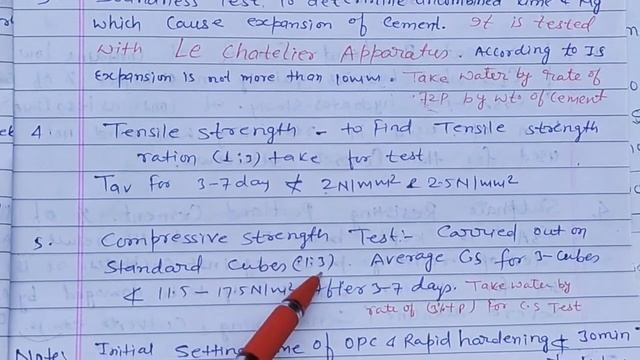 Soundness Test: To determine uncombined lime & Mg
which cause expansion of cement. It is tested
with Le Chatelier Apparatus. According to IS
Expansion is not more than 10mm. Take water by rate of
.72P by wto of cement
4. Tensile strength - to find Tensile strength
ration (1:3) take for test
Tav for 3-7 day ≮ 2N/mm² & 2.5N/mm²
5. Compressive strength Test:- Carried out on
Standard Cubes (1:3). Average CS for 3-cubes
≮ 11.5 - 17.5N/m² After 3-7 days. Take water by
rate of for C.S Test
Note: Initial Setting time of OPC & Rapid hardening ≮ 30min